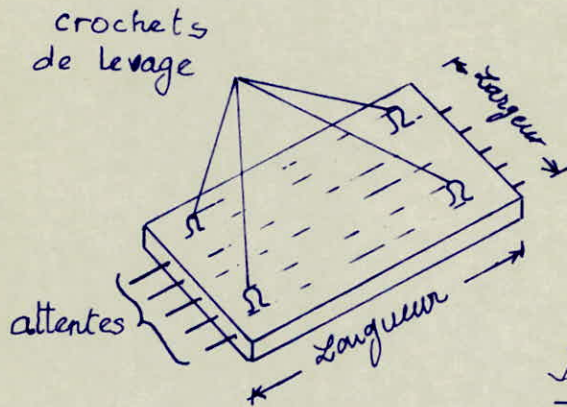 crochets
de levage
Largeur
attentes
Longueur